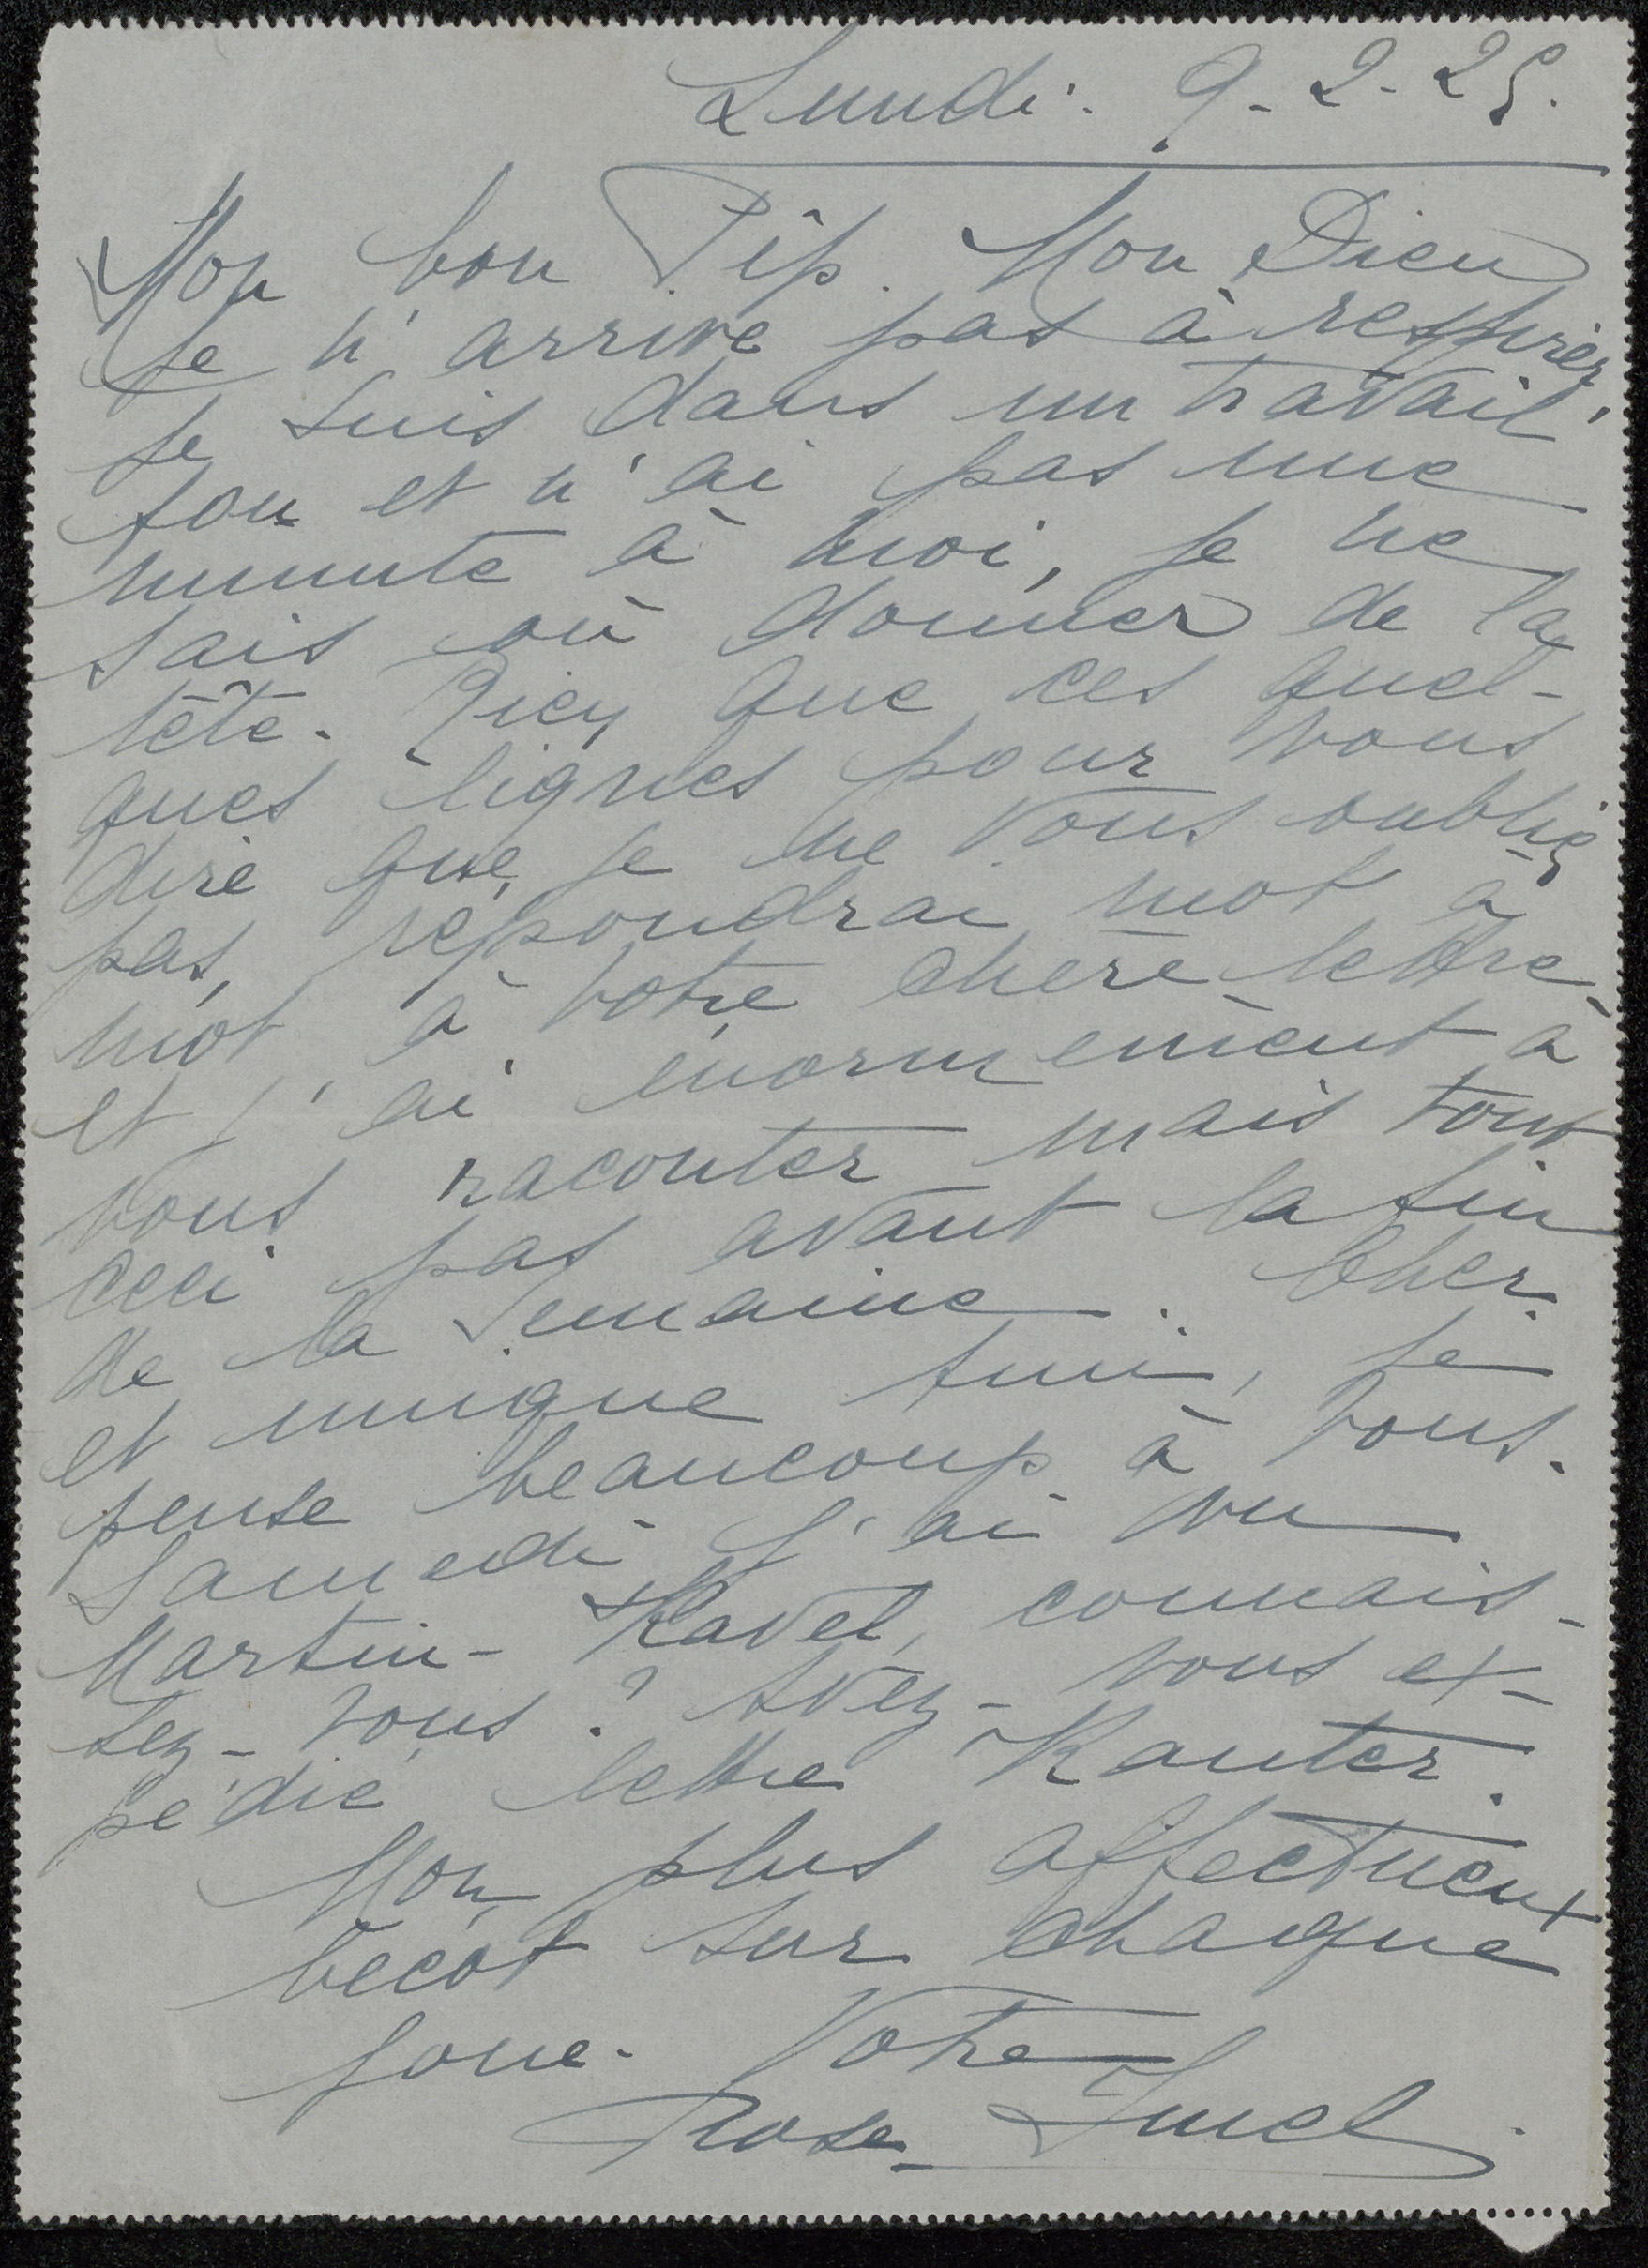 Lundi. 9-2-25.
Mon bon Pip. Mon Dieu
je n'arrive pas à respirer,
je suis dans un travail
fou et n'ai pas une
minute à moi, je ne
sais où donner de la
tête. Rien que ces quel-
ques lignes pour vous
dire que je ne vous oublie
pas, répondrai mot à
mot à votre chère lettre
et j'ai énormément à
vous raconter mais tout
ceci pas avant la fin
de la semaine. Cher
et unique ami, je
pense beaucoup à vous.
Samedi j'ai vu
Martin-Kavel, connais-
sez-vous? Avez-vous ex-
pédié lettre Kanter.
Mon plus affectueux
bécot sur chaque
joue. Votre
Rose